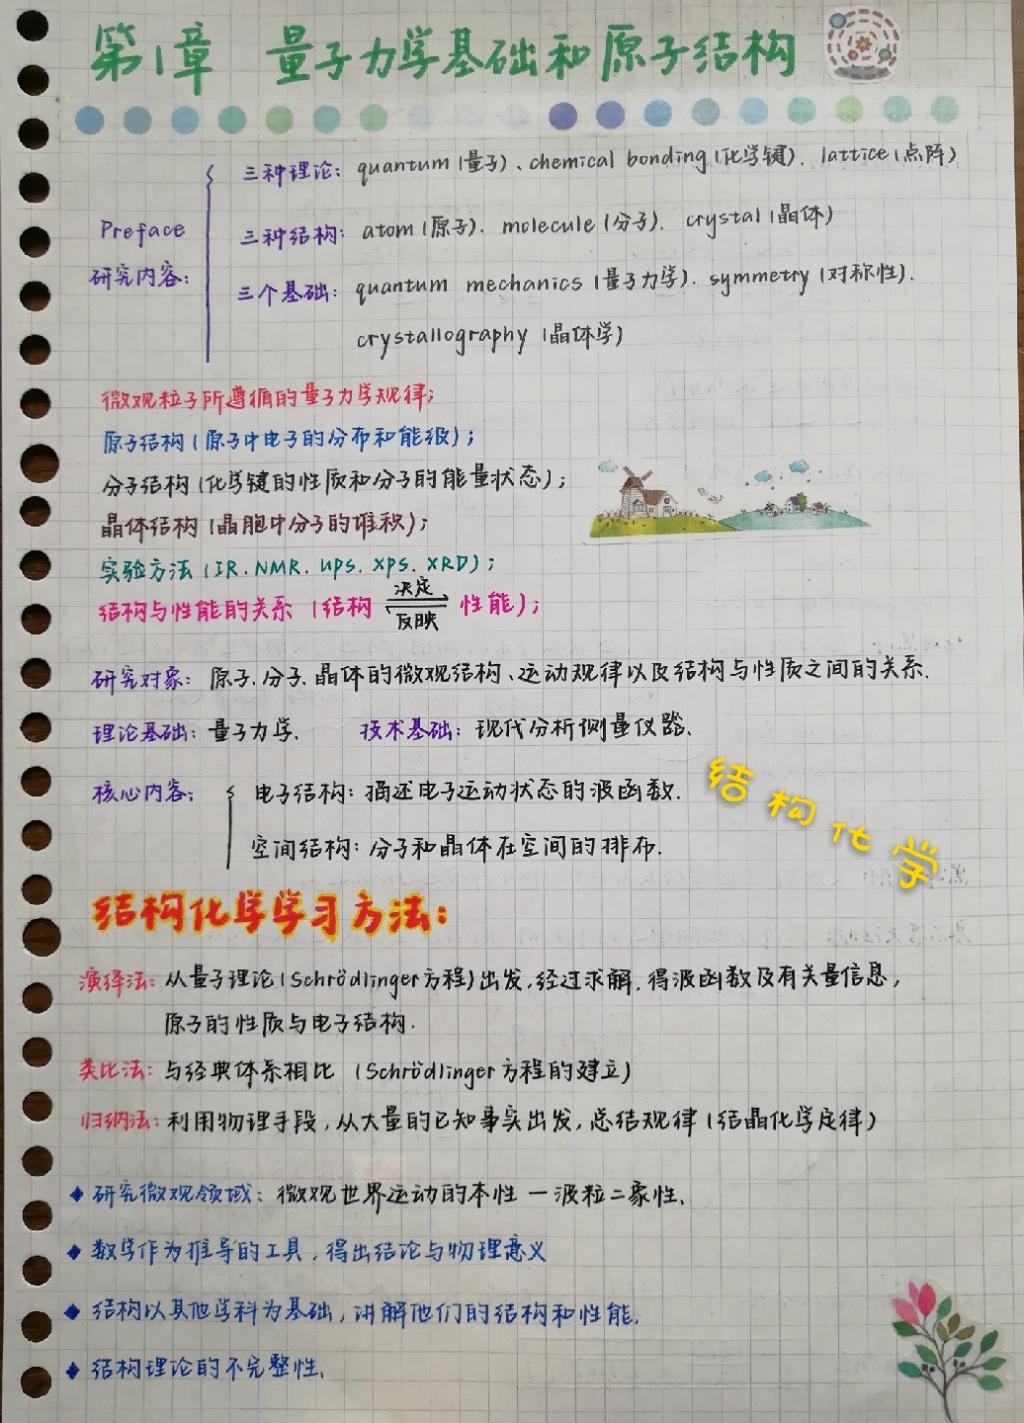 第1章 量子力学基础和原子结构
三种理论: quantum(量子)、chemical bonding(化学键). lattice(点阵)
Preface
三种结构: atom(原子). molecule(分子). crystal(晶体)
研究内容:
三个基础: quantum mechanics(量子力学). symmetry(对称性).
crystallography(晶体学)
微观粒子所遵循的量子力学规律;
原子结构(原子中电子的分布和能级);
分子结构(化学键的性质和分子的能量状态);
晶体结构(晶胞中分子的堆积);
实验方法(IR. NMR. ups. xps. XRD);
决定
结构与性能的关系(结构 ⇌ 性能);
反映
研究对象: 原子.分子.晶体的微观结构、运动规律以及结构与性质之间的关系.
理论基础: 量子力学. 技术基础: 现代分析侧量仪器.
核心内容:
电子结构: 描述电子运动状态的波函数.
空间结构: 分子和晶体在空间的排布.
结构化学
结构化学学习方法:
演绎法: 从量子理论(Schrödlinger方程)出发,经过求解.得波函数及有关量信息,
原子的性质与电子结构.
类比法: 与经典体系相比 (Schrödlinger方程的建立)
归纳法: 利用物理手段,从大量的已知事实出发,总结规律(结晶化学定律)
◆ 研究微观领域: 微观世界运动的本性 — 波粒二象性.
◆ 数学作为推导的工具.得出结论与物理意义
◆ 结构以其他学科为基础,讲解他们的结构和性能.
◆ 结构理论的不完整性.